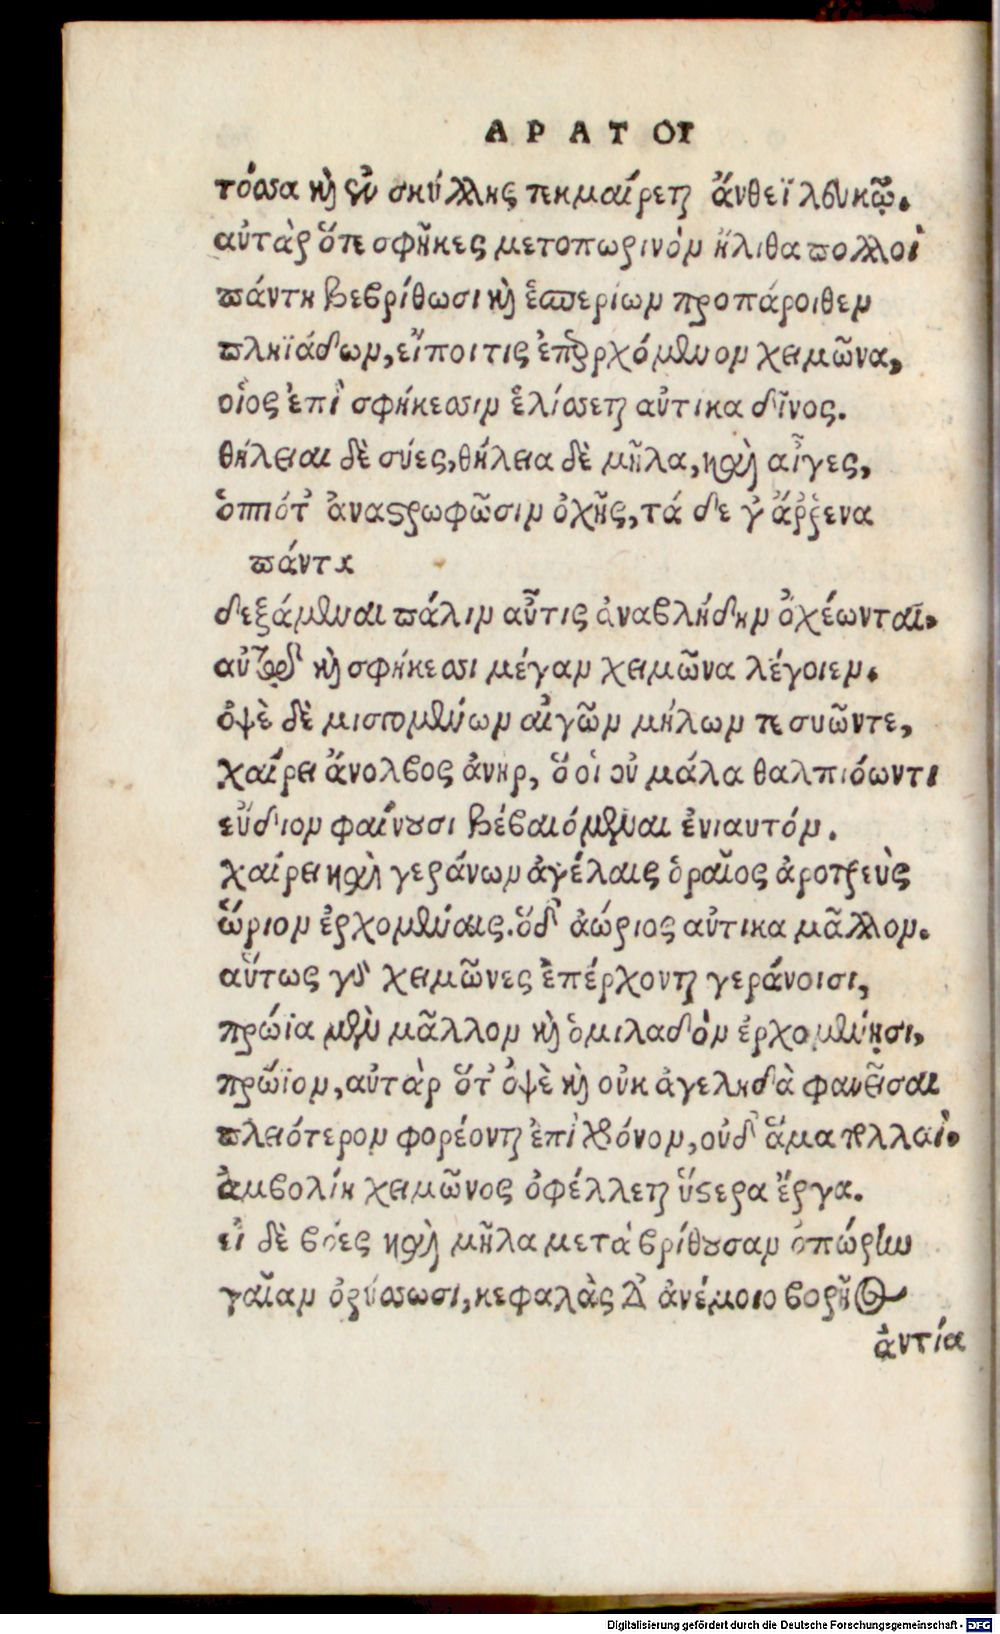 ΑΡΑΤΟΥ
τόσσα καὶ ἓν σκύλλης τεκμαίρεται ἄνθεϊ λευκῷ.
αὐτὰρ ὅτε σφῆκες μετοπωρινὸν ἤλιθα πολλοὶ
πάντη βεβρίθωσι καὶ ἑσπερίων προπάροιθεν
πληϊάδων, εἴποι τις ἐπερχόμενον χειμῶνα,
οἷος ἐπὶ σφήκεσσιν ἑλίσσεται αὐτικα δῖνος.
θήλειαι δὲ σύες, θήλεια δὲ μῆλα, καὶ αἶγες,
ὁππότ' ἀναστρωφῶσιν ὀχῆς, τά δε γ' ἄῤῥενα
πάντα
δεξάμεναι πάλιν αὖτις ἀναβλήδην ὀχέωνται.
αὕτως καὶ σφήκεσσι μέγαν χειμῶνα λέγοιεν.
ὀψὲ δὲ μισγομένων αἰγῶν μήλων τε συῶντε,
χαίρει ἄνολβος ἀνηρ, ὅ οἱ οὐ μάλα θαλπιόωντι
εὔδιον φαίνουσι βέβαιόμεναι ἐνιαυτόν.
χαίρει καὶ γεράνων ἀγέλαις ὁραῖος ἀροτρεὺς
ὥριον ἐρχομέναις. ὅδ' ἀώριος αὐτικα μᾶλλον.
αὕτως γὰρ χειμῶνες ἐπέρχονται γεράνοισι,
πρώϊα μὲν μᾶλλον καὶ ὁμιλαδὸν ἐρχομένῃσι,
πρώϊον, αὐτὰρ ὅτ' ὀψὲ καὶ οὐκ ἀγεληδὰ φανεῖσαι
πλειότερον φορέονται ἐπὶ χρόνον, οὐδ' ἅμα πολλαὶ.
ἀμβολίη χειμῶνος ὀφέλλεται ὕστερα ἔργα.
εἰ δὲ βόες καὶ μῆλα μετὰ βρίθουσαν ὀπώρην
γαῖαν ὀρύσσωσι, κεφαλὰς δ' ἀνέμοιο βορῆος
ἀντία
Digitalisierung gefördert durch die Deutsche Forschungsgemeinschaft - DFG